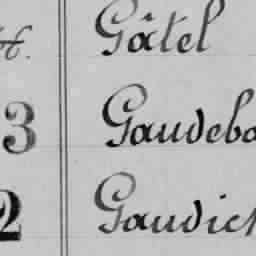 H. Gâtel
3 Gaudebo
2 Gaudich